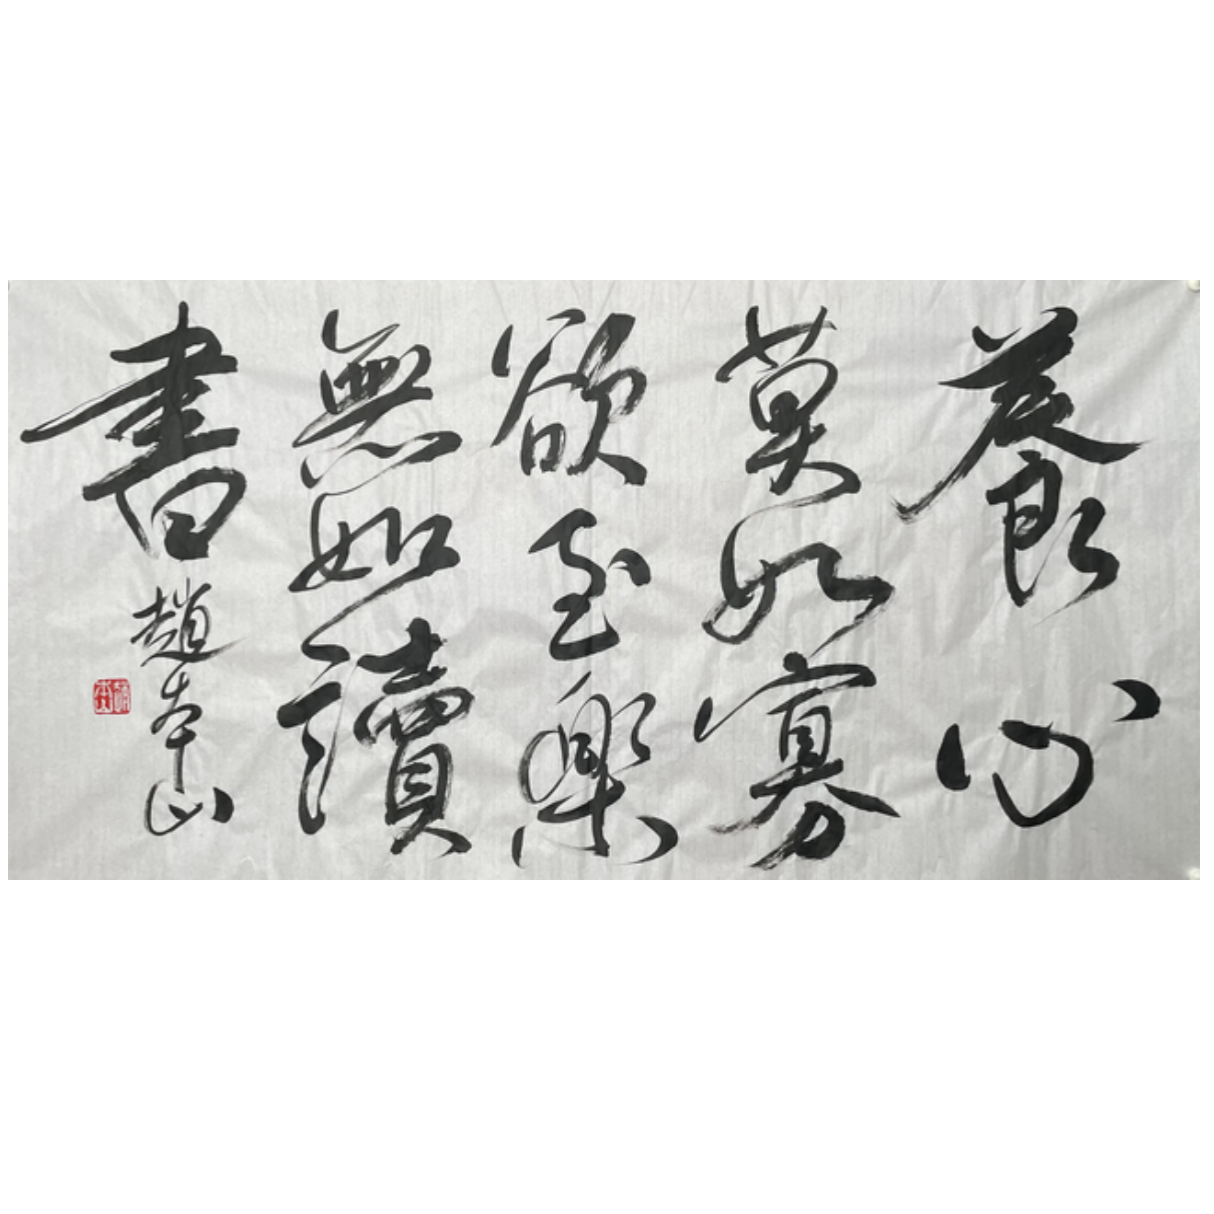 養心
莫如寡
欲至樂
無如讀
書
趙本山